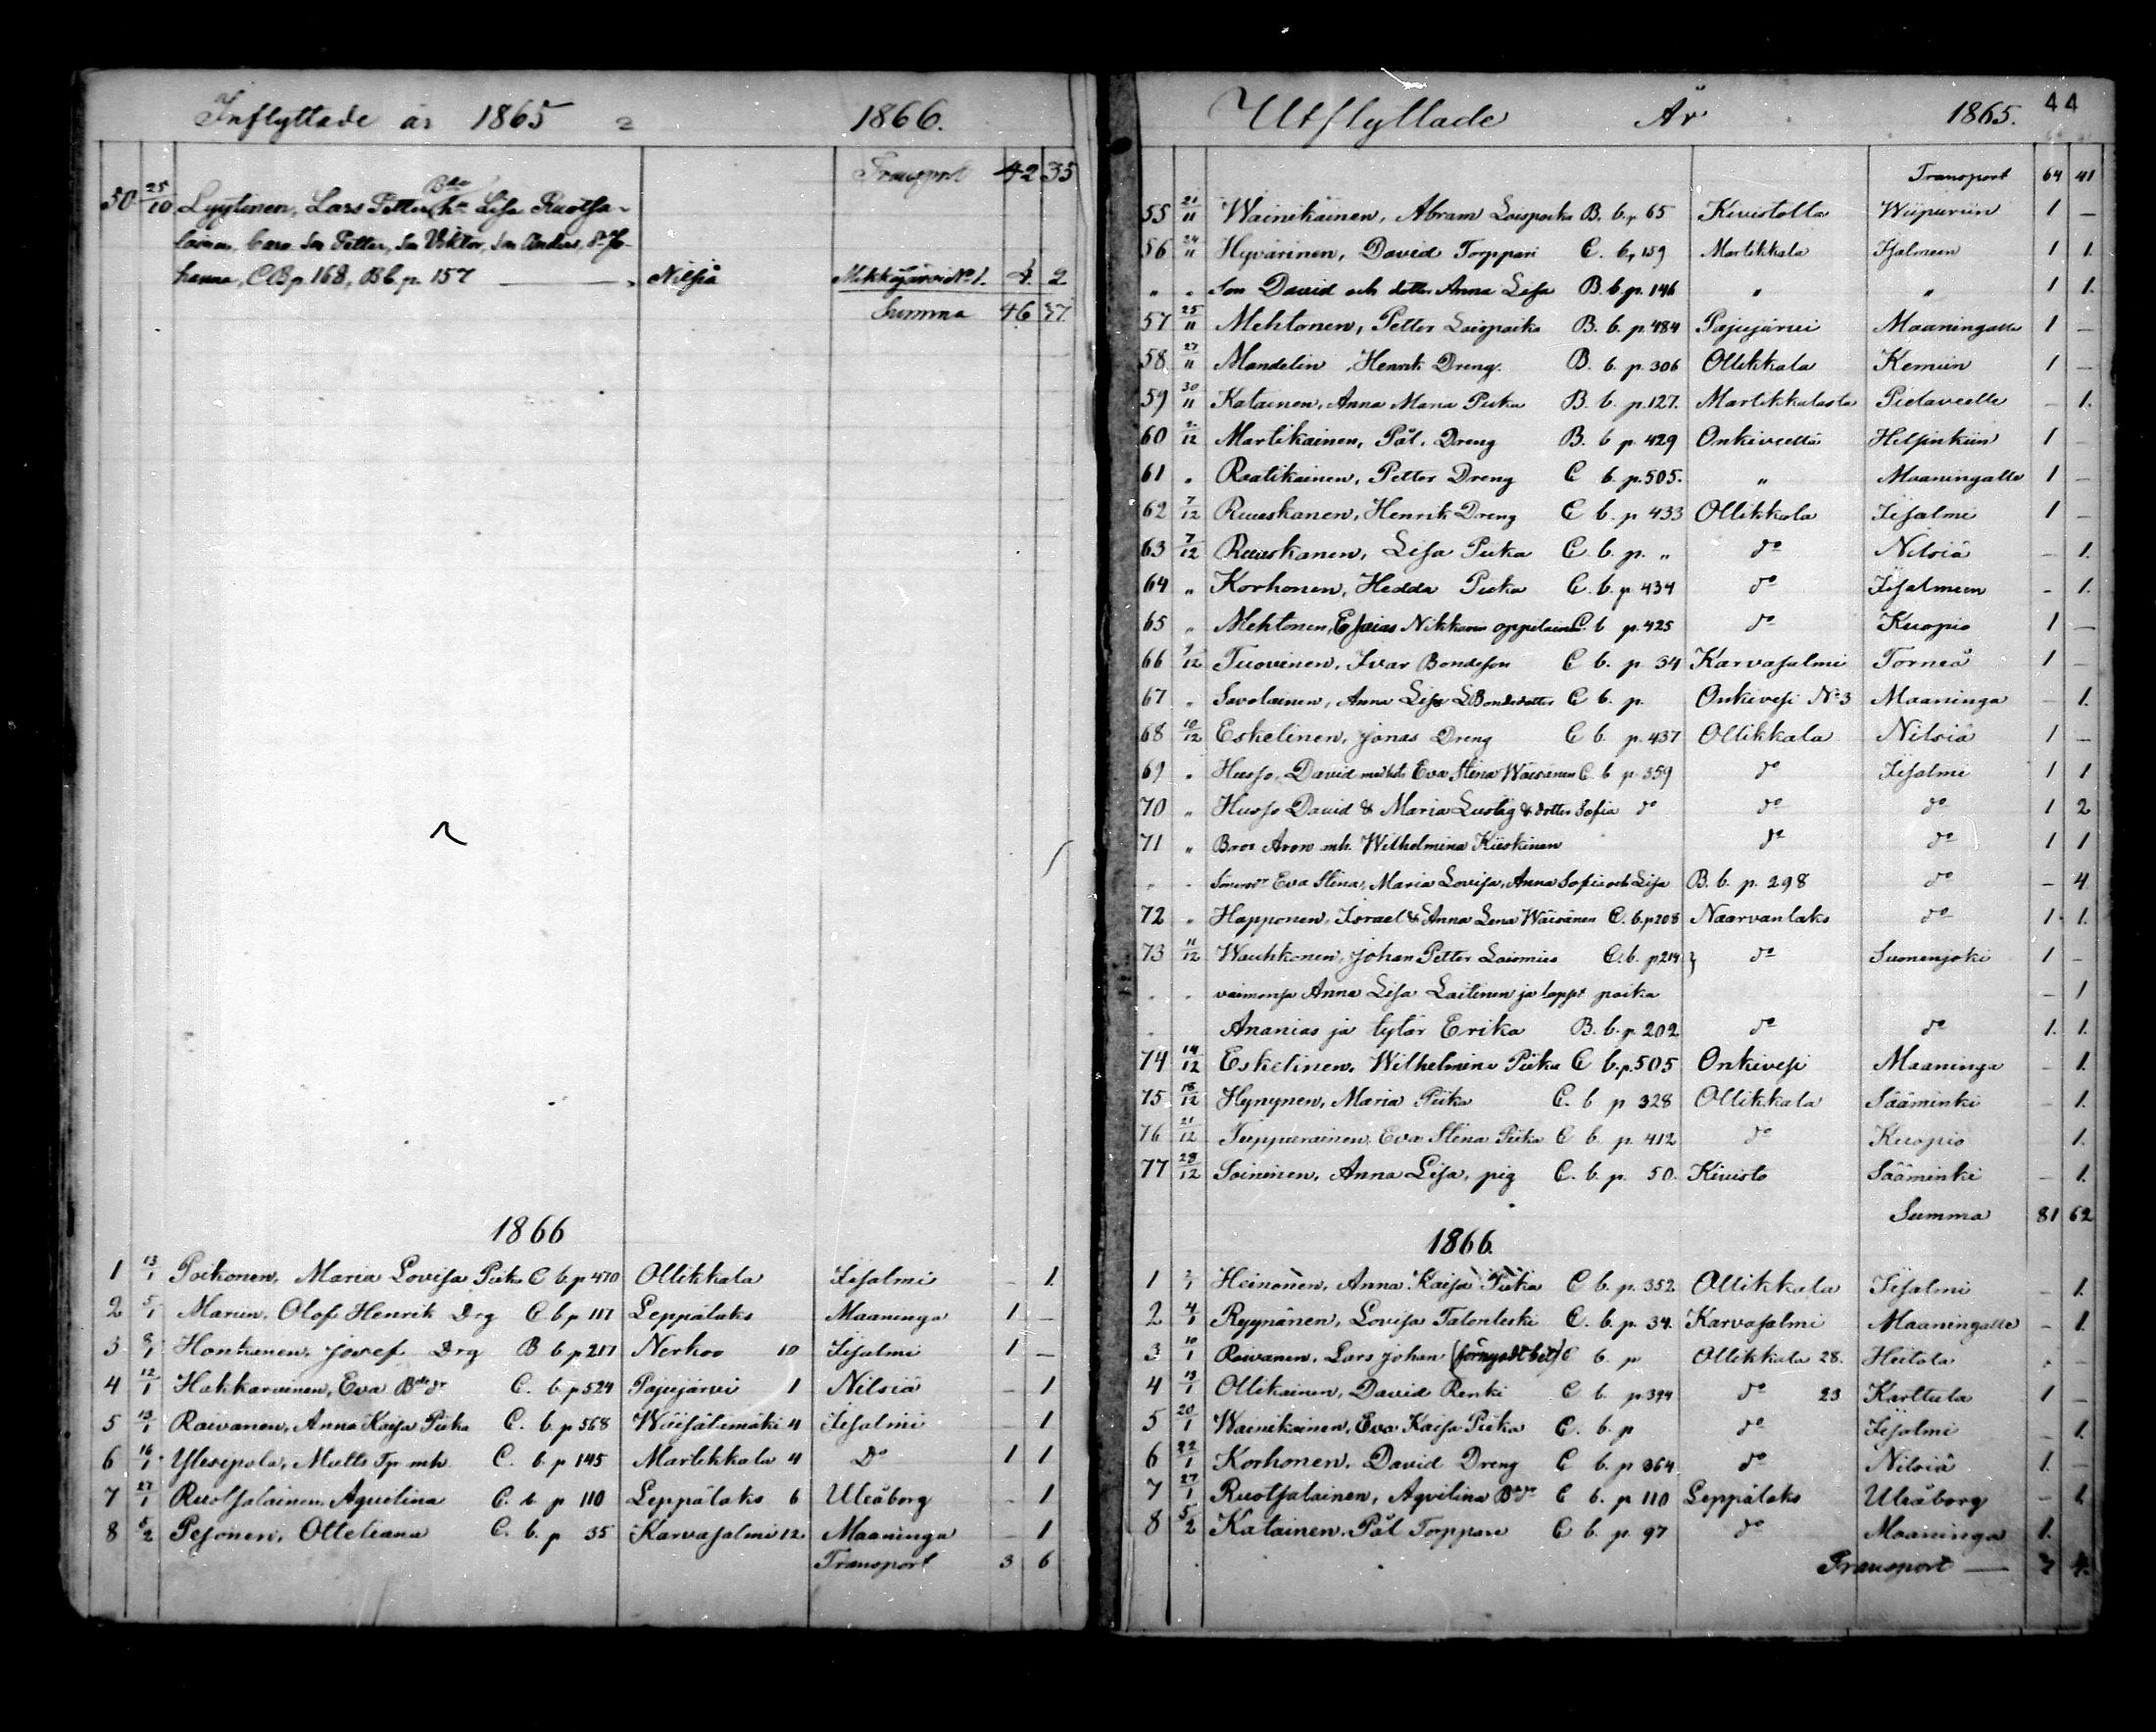 Inflyttade år 1865 1866.
Transport 42 35
50 25/10 Lyytinen, Lars Petter, Bde hu Lisa Ruotsa-
lainen, barn Sn Petter, Sn Viktor, Sn Anders, Dr Jo-
hanna, C B p. 168, B b. p. 157 — Nilsiä Mikkajärvi No 1. 4. 2.
Summa 46 37.
1866
1 13/1 Poikonen, Maria Lovisa Piika C b. p 470 Ollikkala Iisalmi – 1.
2 5/1 Mariin, Olof Henrik Drg C b p 117 Leppälaks Maaninga 1 –
3 8/1 Honkanen, Josef Drg B b p 217 Nerkoo 10 Iisalmi 1 –
4 12/1 Hakkarainen, Eva Bdedr C. b. p 524 Pajujärvi 1 Nilsiä – 1
5 13/1 Roivanen, Anna Kaisa Piika C. b. p 568 Wäisälämäki 4 Iisalmi – 1
6 16/1 Ylisipola, Matts Tpr mh C. b. p 145 Martikkala 4 Do 1 1
7 27/1 Ruotsalainen, Aqvilina C. b p 110 Leppälaks 6 Uleåborg – 1
8 5/2 Pesonen, Otteliana C. b. p 35 Karvasalmi 12. Maaninga – 1
Transport 3 6
44
Utflyttade År 1865.
Transport 64 41
55 21/11 Wainikainen, Abram Loispoika B. b. p 65 Kivistoltä Wiipuriin 1 –
56 24/11 Hyvärinen, David Torppari C. b. p 159 Martikkala Isalmeen 1 1.
" " Son David och dotter Anna Lisa B. b. p. 146 " " 1 1.
57 25/11 Mehtonen, Petter Loispoika B. b. p. 484 Pajujärvi Maaningalle 1 –
58 27/11 Mandelin, Henrik Dreng. B. b. p. 306 Ollikkala Kemiin 1 –
59 30/11 Katainen, Anna Maria Piika B. b. p. 127. Martikkalasta Pielaveelle – 1.
60 2/12 Martikainen, Pål, Dreng B. b p. 429 Onkiveeltä Helsinkiin 1 –
61 " Raatikainen, Petter Dreng C b. p. 505. " Maaningalle 1 –
62 7/12 Ruuskanen, Henrik Dreng C b. p 433 Ollikkala Iisalmi 1 –
63 7/12 Ruuskanen, Lisa Piika C. b. p. " do Nilsiä – 1.
64 " Korhonen, Hedda Piika C. b. p. 434 do Iisalmeen – 1.
65 " Mehtonen, Esaias Nikkarin oppilainen C. b p. 425 do Kuopio 1 –
66 9/12 Tuovinen, Ivar Bondeson C b. p 34 Karvasalmi Torneå 1 –
67 " Savolainen, Anna Lisa Bondedotter C b. p. Onkivesi No 3 Maaninga – 1.
68 10/12 Eskelinen, Jonas Dreng C b. p. 437 Ollikkala Nilsiä 1 –
69 " Husso, David med hst. Eva Stina Wäisänen C. b p. 359 do Iisalmi 1 1
70 " Husso David & Maria Lustig & dotter Sofia do do do 1 2
71 " Bror Aron mh. Wilhelmina Kiiskinen do do 1 1
" " Eva Stina, Maria Lovisa, Anna Sofia och Lisa B. b. p. 298 do – 4.
72 " Happonen, Israel & Anna Lena Wäisänen C. b. p 208 Naarvanlaks do 1. 1.
73 11/12 Wauhkonen, Johan Petter Loismies C. b. p 214 } do Suonenjoki 1 –
" " vaimonsa Anna Lisa Laitinen ja lapset poika – 1
" Ananias ja tytär Erika B. b. p. 202 do do 1. 1.
74 14/12 Eskelinen, Wilhelmina Piika C b. p. 505 Onkivesi Maaninga – 1.
75 18/12 Hynynen, Maria Piika C. b p 328 Ollikkala Sääminki – 1.
76 21/12 Tuppurainen, Eva Stina Piika C b. p. 412 do Kuopio 1.
77 28/12 Soininen, Anna Lisa, pig C. b. p. 50. Kivisto Sääminki – 1.
Summa 81 62
1866.
1 2/1 Heinonen, Anna Kaisa Piika C b. p. 352 Ollikkala Iisalmi – 1.
2 4/1 Ryynänen, Lovisa Talonleski C. b. p. 34. Karvasalmi Maaningalle – 1.
3 10/1 Roivanen, Lars Johan (förnyadt bet) C b. p Ollikkala 28. Hiitola – –
4 13/1 Ollikainen, David Renki C b. p 394 do 23 Karttula 1 –
5 20/1 Wainikainen, Eva Kaisa Piika C. b. p do Iisalmi – 1.
6 22/1 Korhonen, David Dreng C b. p 364 do Nilsiä 1. –
7 27/1 Ruotsalainen, Aqvilina Bdedr C b. p 110 Leppälaks Uleåborg – 1.
8 5/2 Katainen, Pål Torppari C b. p. 97 do Maaninga 1.
Transport — 4.